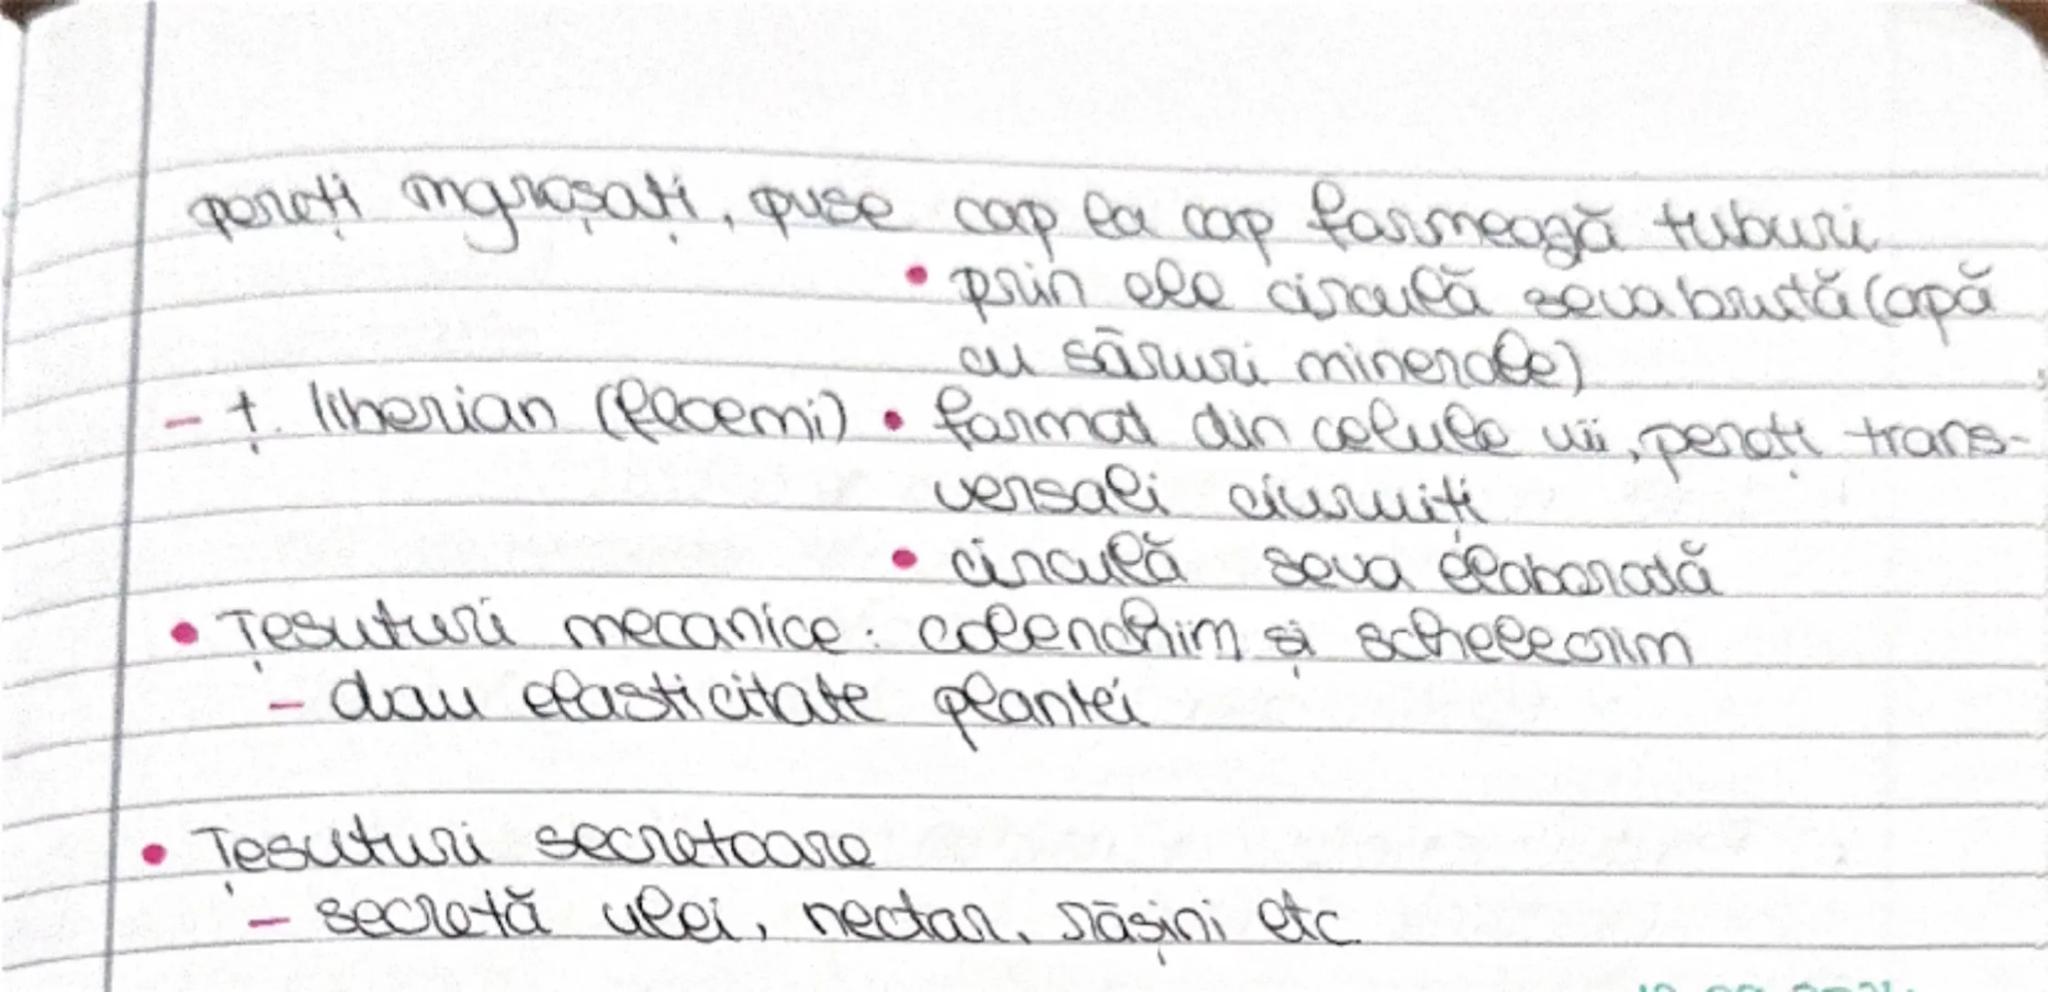 pereți îngroșați, puse cap la cap formează tuburi
• prin ele circulă seva brută (apă
cu săruri minerale)
- ț. liberian (floemi) • format din celule vii, pereți trans-
versali ciuruiți
• circulă seva elaborată
• Țesuturi mecanice: colenchim și schelecrim
- dau elasticitate plantei
• Țesuturi secretoare
- secretă ulei, nectar, rășini etc.